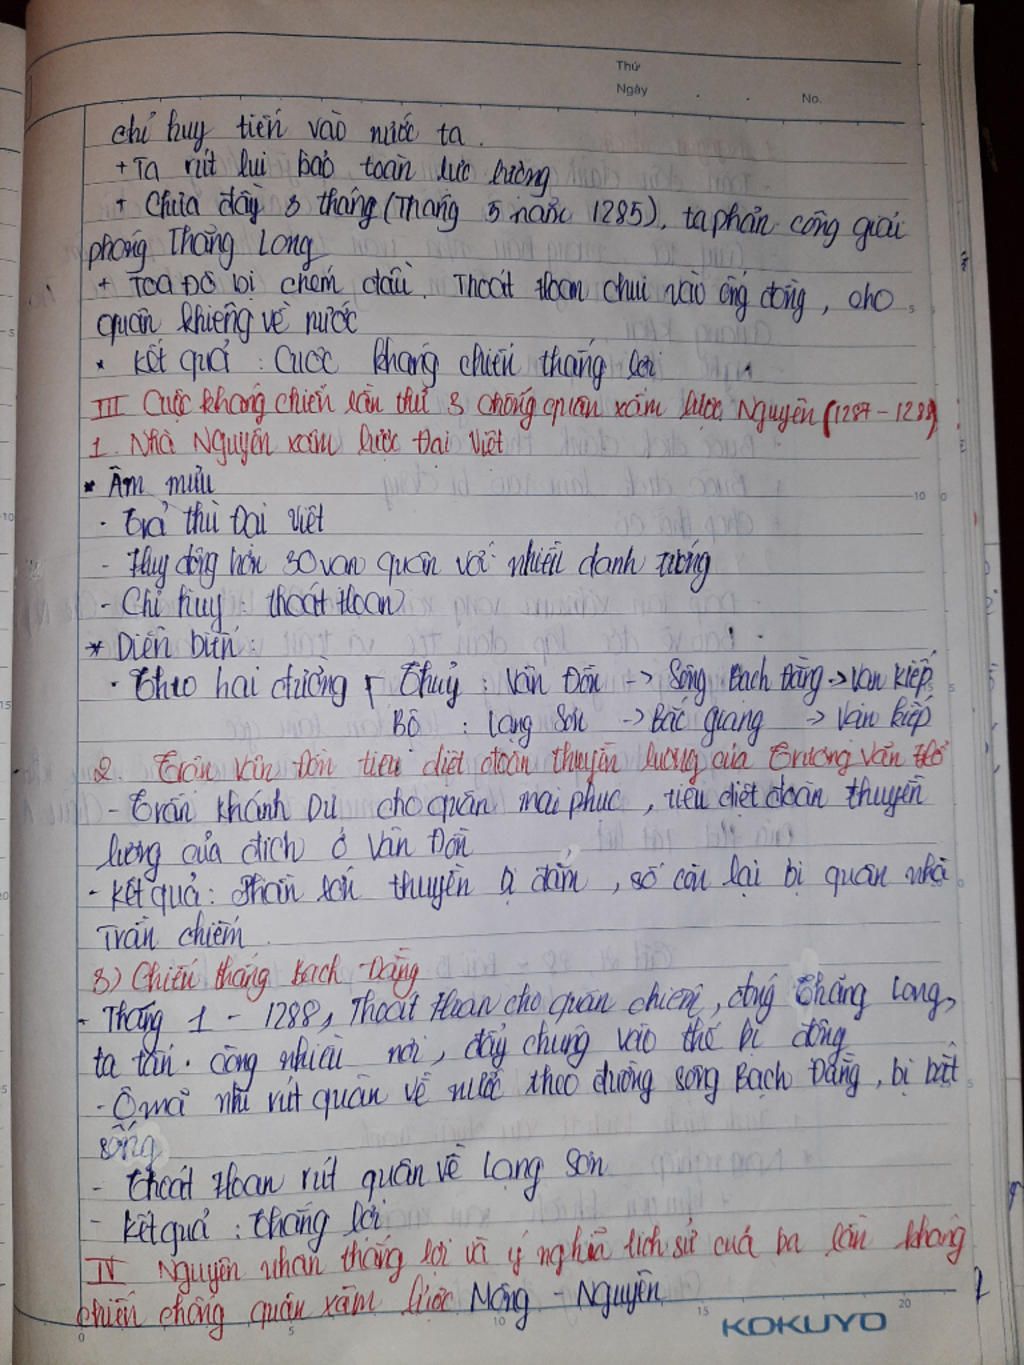 Thứ
Ngày
No.
chỉ huy tiến vào nước ta.
+ Ta rút lui bảo toàn lực lượng
+ Chưa đầy 3 tháng (Tháng 5 năm 1285), ta phản công giải
phóng Thăng Long
+ Toa Đô bị chém đầu. Thoát Hoan chui vào ống đồng, cho
quân khiêng về nước
* Kết quả : Cuộc kháng chiến thắng lợi
III Cuộc kháng chiến lần thứ 3 chống quân xâm lược Nguyên (1287 - 1288)
1. Nhà Nguyên xâm lược Đại Việt
* Âm mưu
- Trả thù Đại Việt
- Huy động hơn 30 vạn quân với nhiều danh tướng
- Chỉ huy : Thoát Hoan
* Diễn biến :
- Theo hai đường Thuỷ : Vân Đồn -> Sông Bạch Đằng -> Vạn Kiếp
Bộ : Lạng Sơn -> Bắc Giang -> Vạn Kiếp
2. Trận Vân Đồn tiêu diệt đoàn thuyền lương của Trương Văn Hổ
- Trần Khánh Dư cho quân mai phục, tiêu diệt đoàn thuyền
lương của địch ở Vân Đồn
- Kết quả : Phần lớn thuyền bị đắm, số còn lại bị quân nhà
Trần chiếm
3) Chiến thắng Bạch Đằng
- Tháng 1 - 1288, Thoát Hoan cho quân chiếm đóng Thăng Long,
ta tấn công nhiều nơi, đẩy chúng vào thế bị động
- Ô mã nhi rút quân về nước theo đường sông Bạch Đằng, bị bắt
sống
- Thoát Hoan rút quân về Lạng Sơn
- Kết quả : thắng lợi
IV Nguyên nhân thắng lợi và ý nghĩa lịch sử của ba lần kháng
chiến chống quân xâm lược Mông - Nguyên
KOKUYO